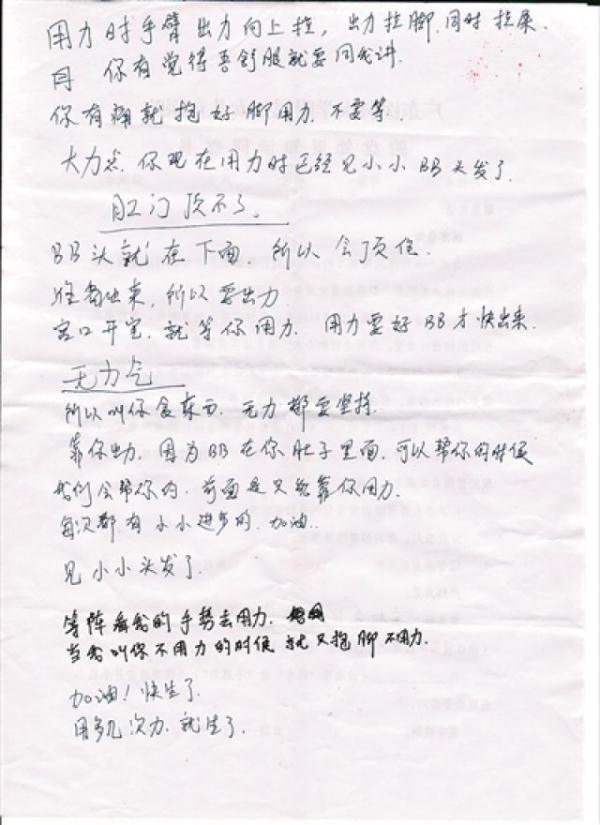 用力时手臂出力向上拉，出力拉脚.同时拉屎.
你有觉得吾舒服就要同我讲.
你有痛就抱好脚用力.不要等.
大力点.你现在用力时已经见小小BB头发了.
肛门顶不了。
BB头就在下面.所以会顶住.
出来,所以要出力
宫口开完.就等你用力.用力要好BB才快出来.
无力气
所以叫你食东西.无力都要坚持.
靠你出力.因为BB在你肚子里面.可以帮你的时候
我们会帮你的.前面是只能靠你用力.
每次都有小小进步的.加油..
见小小头发了.
等阵看我的手势去用力.
当我叫你不用力的时候就只抱脚不用力.
加油！快生了.
用多几次力.就生了.